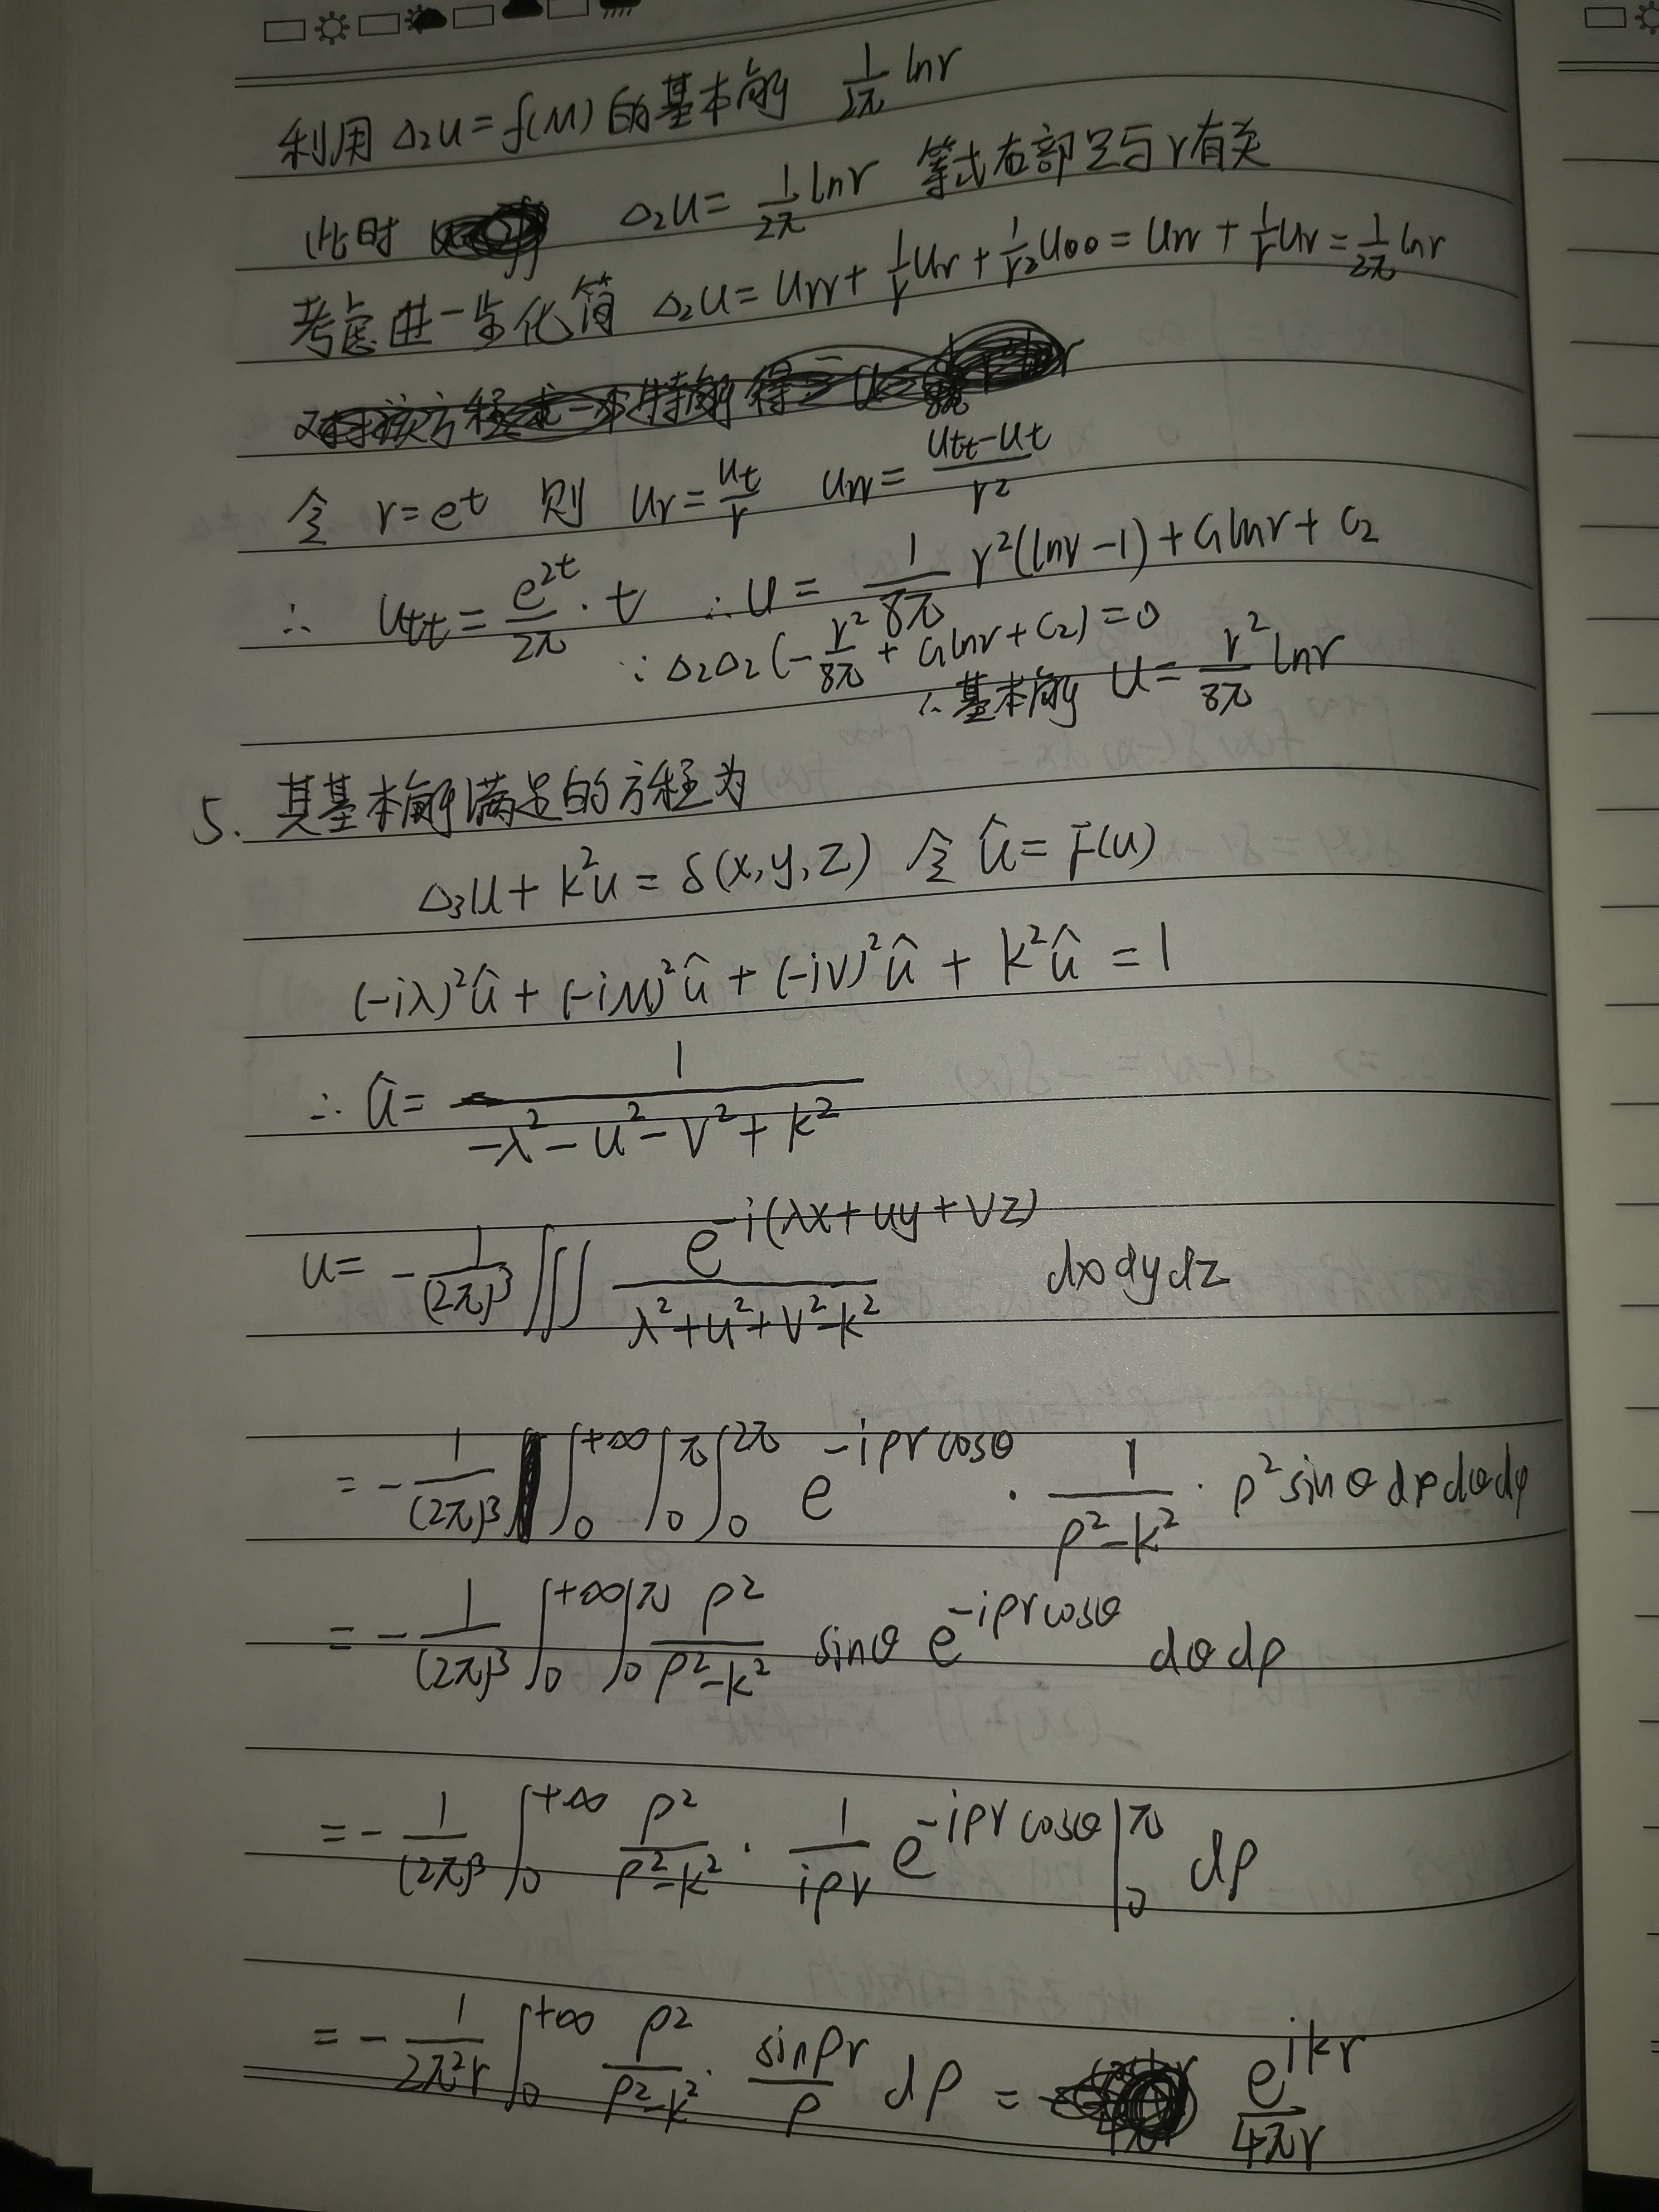 利用 Δ₂u = f(M) 的基本解 1/2π lnr
此时 Δ₂u = 1/2π lnr 等式右部只与r有关
考虑进一步化简 Δ₂u = urr + 1/r ur + 1/r² uθθ = urr + 1/r ur = 1/2π lnr
令 r=e^t 则 ur = ut/r urr = (utt-ut)/r²
∴ utt = e^{2t}/2π · t ∴ u = 1/8π r²(lnr-1) + c₁lnr + c₂
∵ Δ₂Δ₂(-r²/8π + c₁lnr + c₂) = 0
∴ 基本解 u = r²/8π lnr
5. 其基本解满足的方程为
Δ₃u + k²u = δ(x,y,z) 令 û = F(u)
(-iλ)²û + (-iμ)²û + (-iν)²û + k²û = 1
∴ û = 1/(-λ²-u²-ν²+k²)
u = -1/(2π)³ ∭ e^{-i(λx+uy+νz)}/(λ²+u²+ν²-k²) dxdydz
= -1/(2π)³ ∫₀^{+∞} ∫₀^π ∫₀^{2π} e^{-iρr cosθ} · 1/(ρ²-k²) · ρ² sinθ dρdθdφ
= -1/(2π)³ ∫₀^{+∞} ∫₀^π ρ²/(ρ²-k²) sinθ e^{-iρr cosθ} dθdρ
= -1/(2π)³ ∫₀^{+∞} ρ²/(ρ²-k²) · 1/(iρr) e^{-iρr cosθ} |₀^π dρ
= -1/(2π²r) ∫₀^{+∞} ρ²/(ρ²-k²) · sinρr/ρ dρ = e^{ikr}/4πr